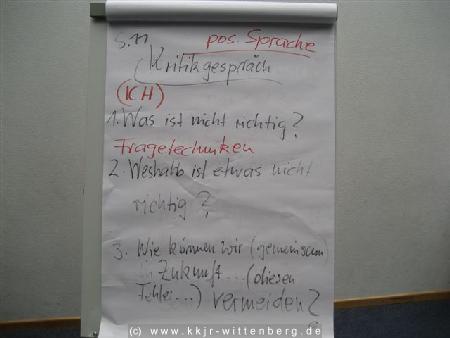 S.11 pos. Sprache
Kritikgespräch
(ICH)
1. Was ist nicht richtig?
Fragetechniken
2. Weshalb ist etwas nicht
richtig?
3. Wie können wir (gemeinsam)
in Zukunft...(diesen
Fehler...) vermeiden?
(c) www.kkjr-wittenberg.de